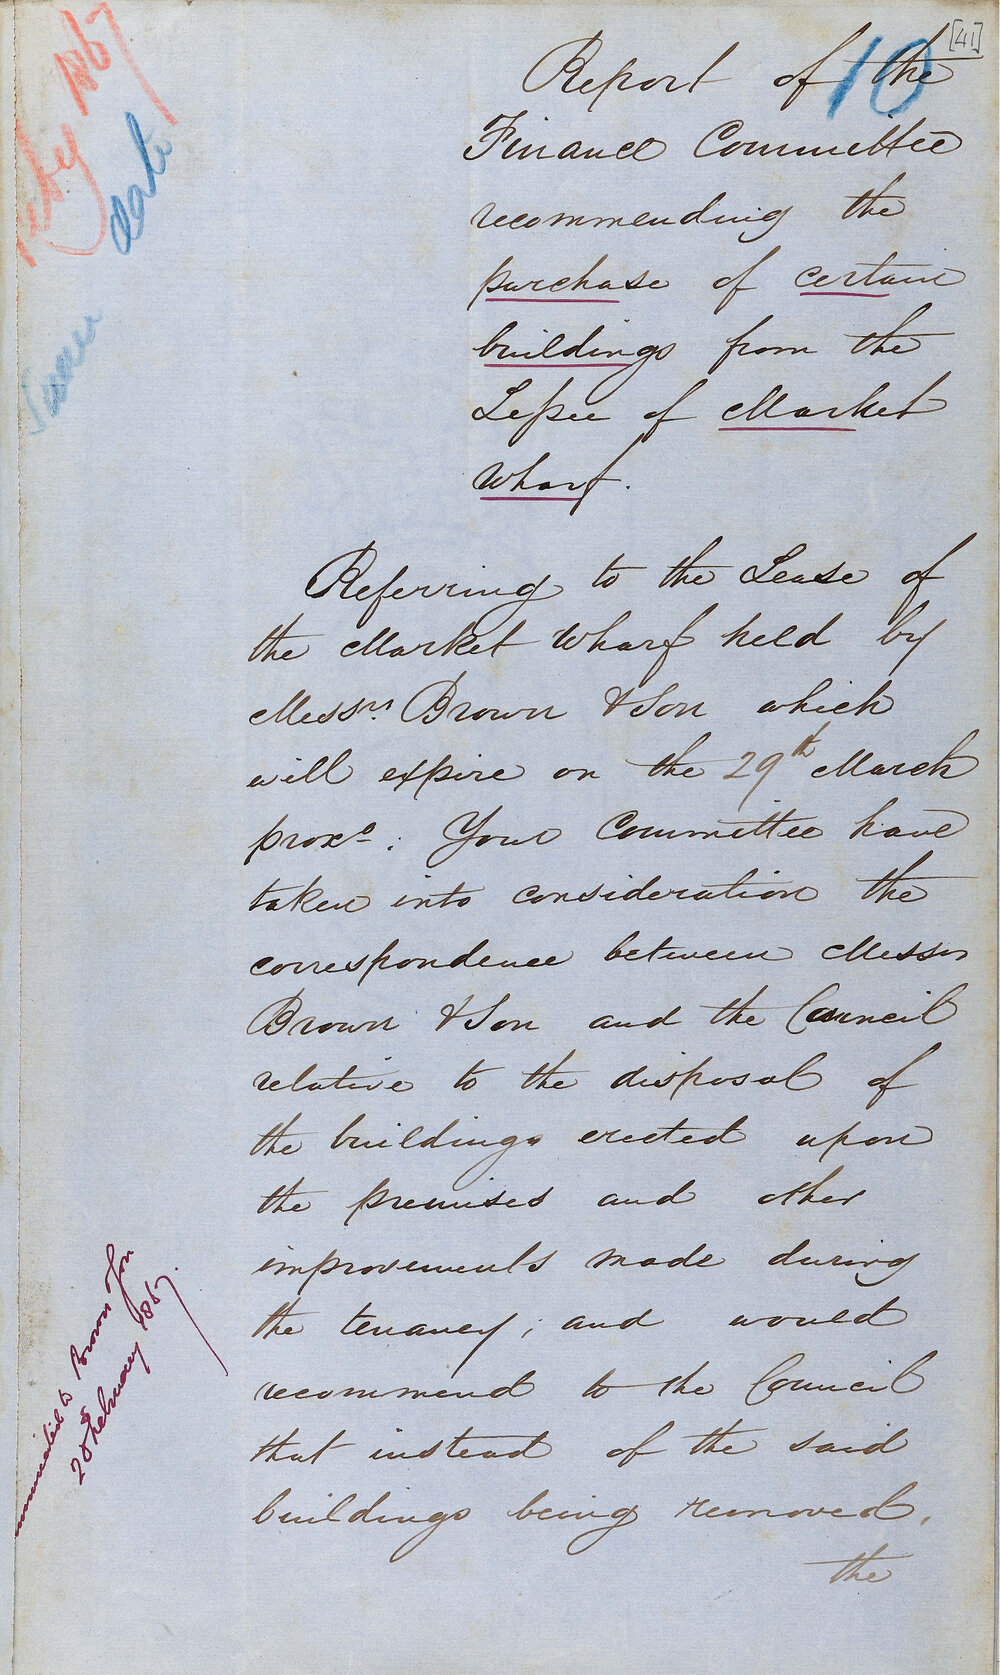 [41]
10
Report of the
Finance Committee
recommending the
purchase of certain
buildings from the
Lessee of Market
Wharf.
Referring to the Lease of
the Market Wharf held by
Messrs. Brown & Son which
will expire on the 29th March
proxo. Your Committee have
taken into consideration the
correspondence between Messrs
Brown & Son and the Council
relative to the disposal of
the buildings erected upon
the premises and other
improvements made during
the tenancy; and would
recommend to the Council
that instead of the said
buildings being removed.
the
1867
date
to Brown & Son
20 February 1867.